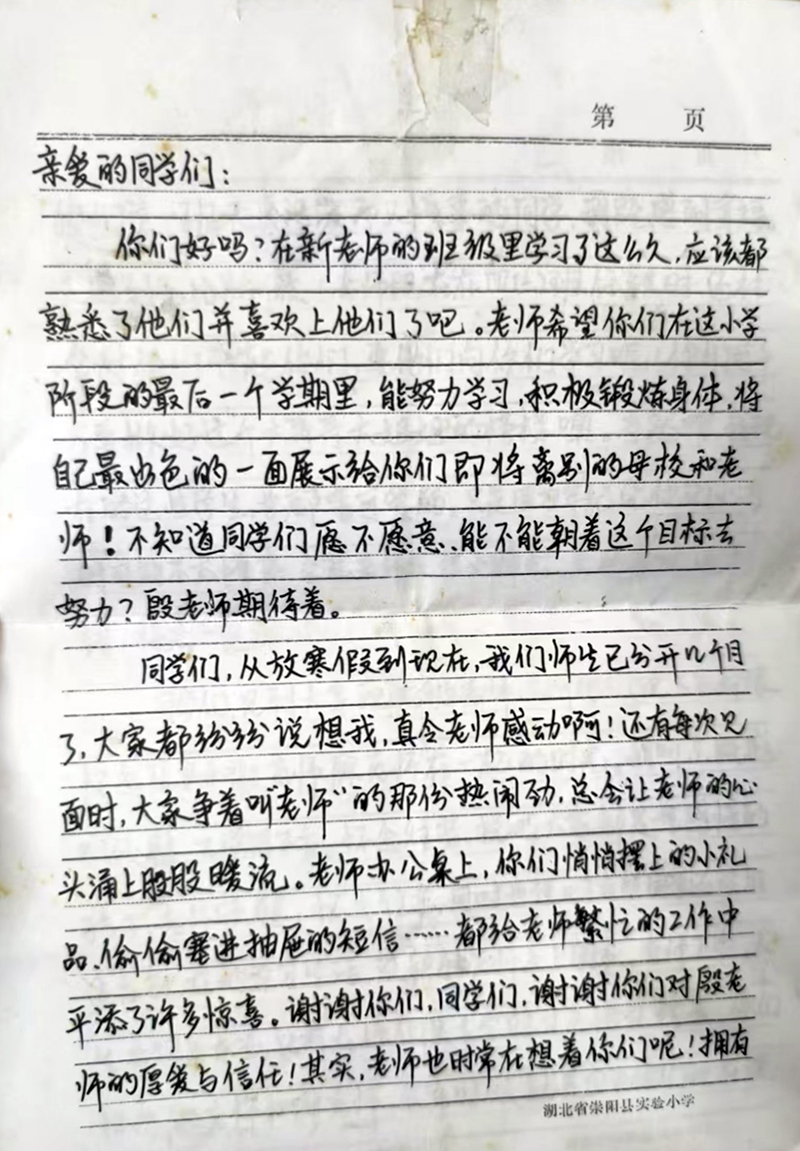 第 页
亲爱的同学们：
你们好吗？在新老师的班级里学习了这么久，应该都
熟悉了他们并喜欢上他们了吧。老师希望你们在这小学
阶段的最后一个学期里，能努力学习，积极锻炼身体，将
自己最出色的一面展示给你们即将离别的母校和老
师！不知道同学们愿不愿意、能不能朝着这个目标去
努力？殷老师期待着。
同学们，从放寒假到现在，我们师生已分开几个月
了，大家都纷纷说想我，真令老师感动啊！还有每次见
面时，大家争着叫“老师”的那份热闹劲，总会让老师的心
头涌上股股暖流。老师办公桌上，你们悄悄摆上的小礼
品、偷偷塞进抽屉的短信……都给老师繁忙的工作中
平添了许多惊喜。谢谢你们，同学们，谢谢你们对殷老
师的厚爱与信任！其实，老师也时常在想着你们呢！拥有
湖北省崇阳县实验小学